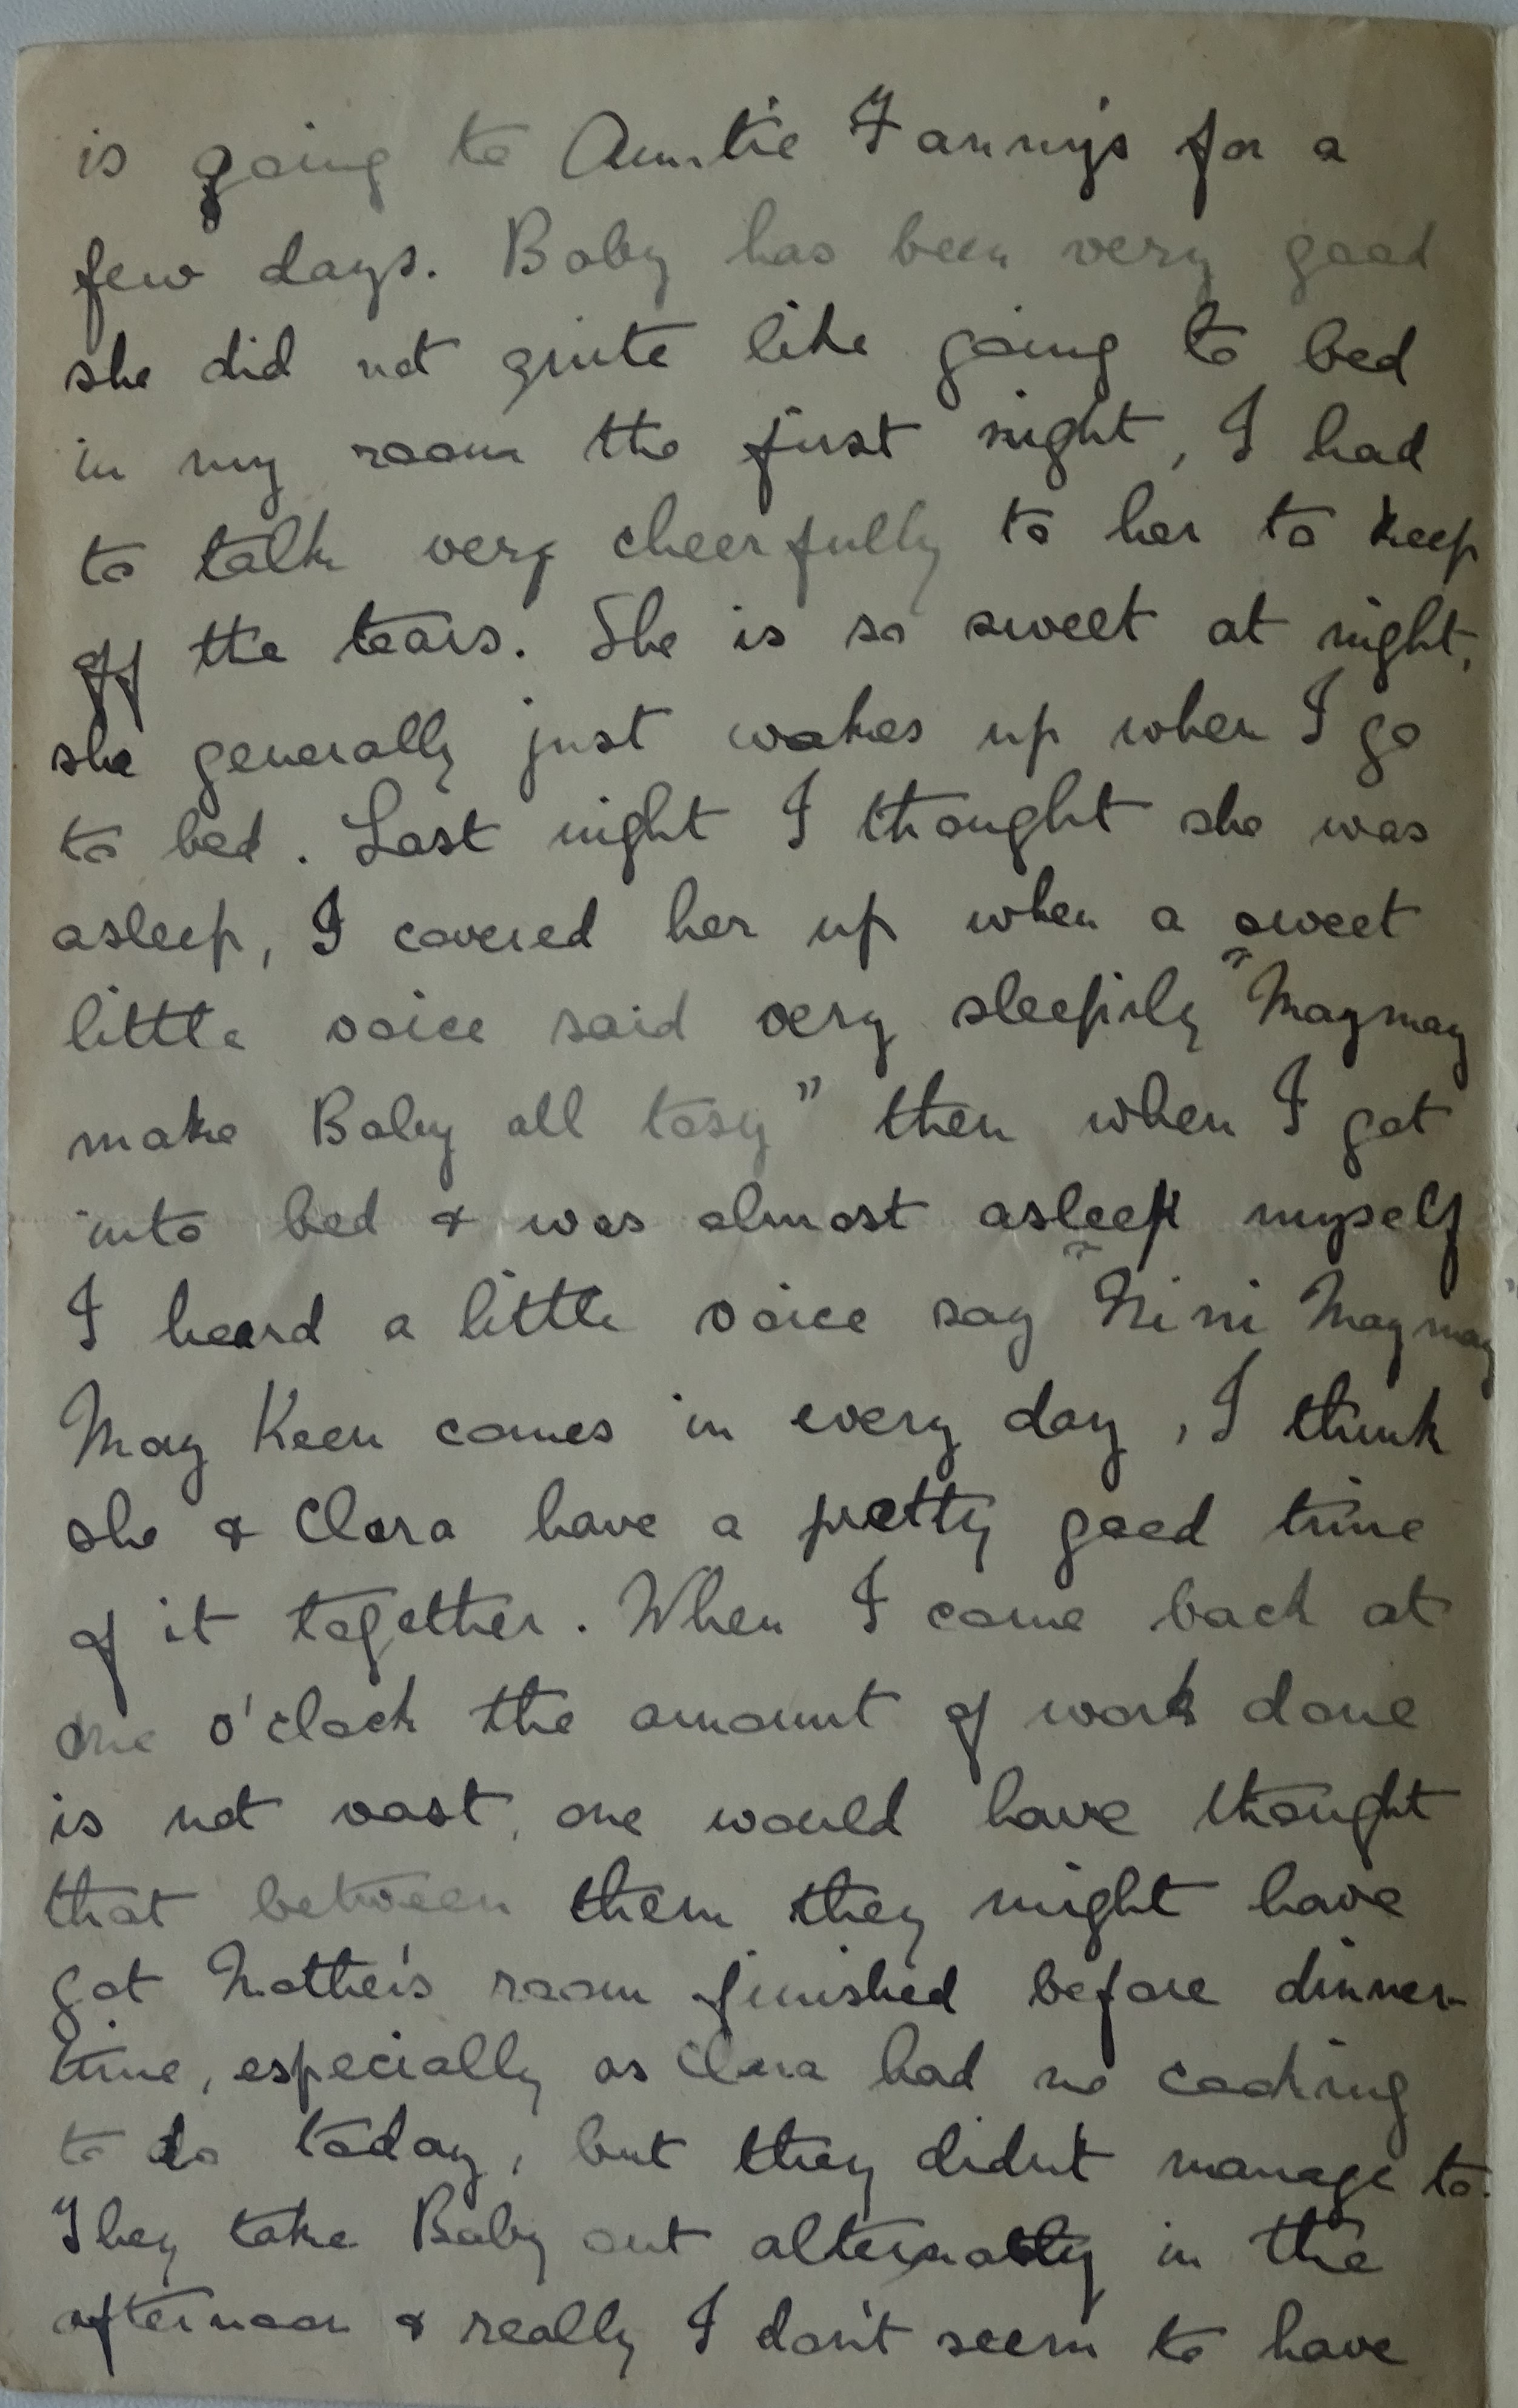 is going to Auntie Fanny's for a
few days. Baby has been very good
she did not quite like going to bed
in my room the first night, I had
to talk very cheerfully to her to keep
off the tears. She is so sweet at night,
she generally just wakes up when I go
to bed. Last night I thought she was
asleep, I covered her up when a sweet
little voice said very sleepily "Maymay
make Baby all tosy" then when I got
into bed & was almost asleep myself
I heard a little voice say "Ni ni Maymay
May Keen comes in every day, I think
she & Clara have a pretty good time
of it together. When I come back at
one o'clock the amount of work done
is not vast, one would have thought
that between them they might have
got Mother's room finished before dinner-
time, especially as Clara had no cooking
to do today, but they didn't manage to.
They take Baby out alternatly in the
afternoon & really I don't seem to have